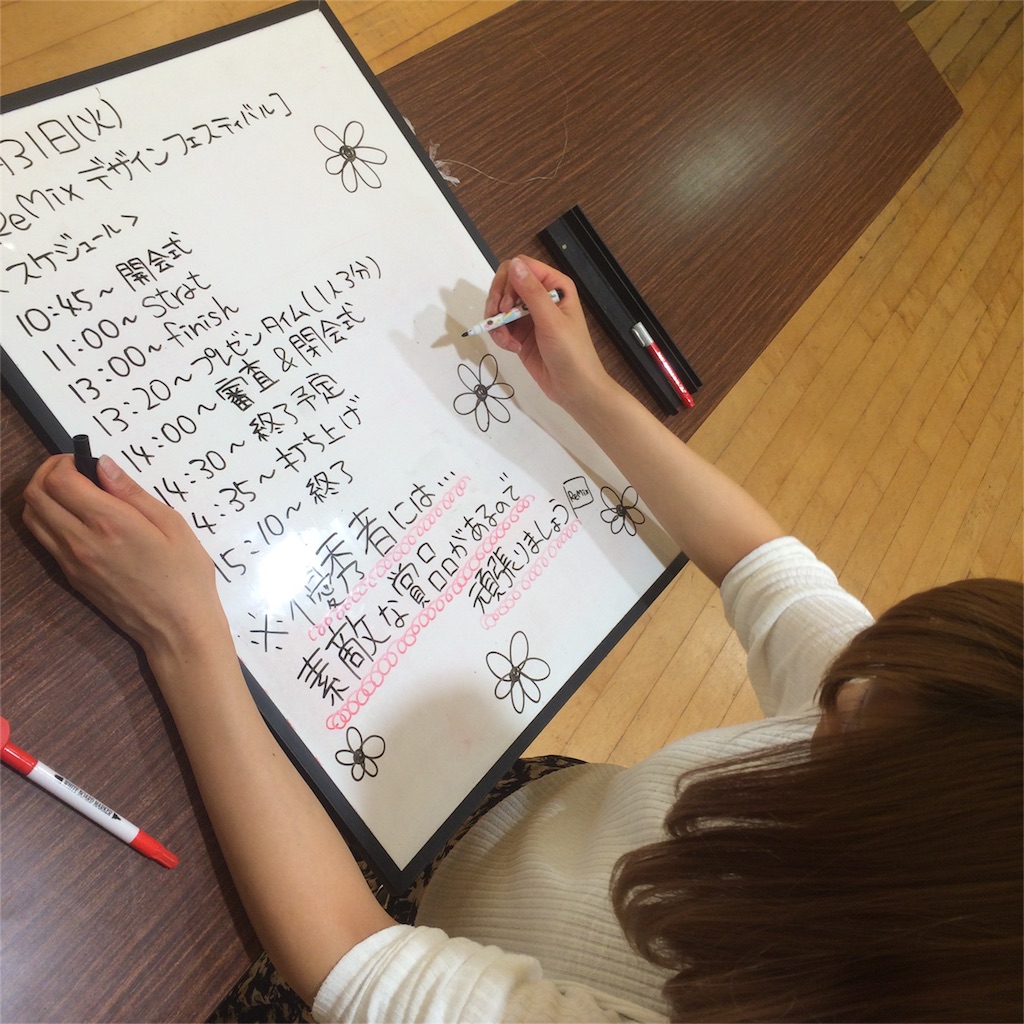 31日(火)
ReMix デザインフェスティバル]
<スケジュール>
10:45~ 開会式
11:00~ Strat
13:00~ finish
13:20~プレゼンタイム(1人3分)
14:00~審査&閉会式
14:30~終了予定
14:35~打ち上げ
15:10~ 終了
※優秀者には…
素敵な賞品があるので
頑張りましょう ReMix
WHITE BOARD MARKER